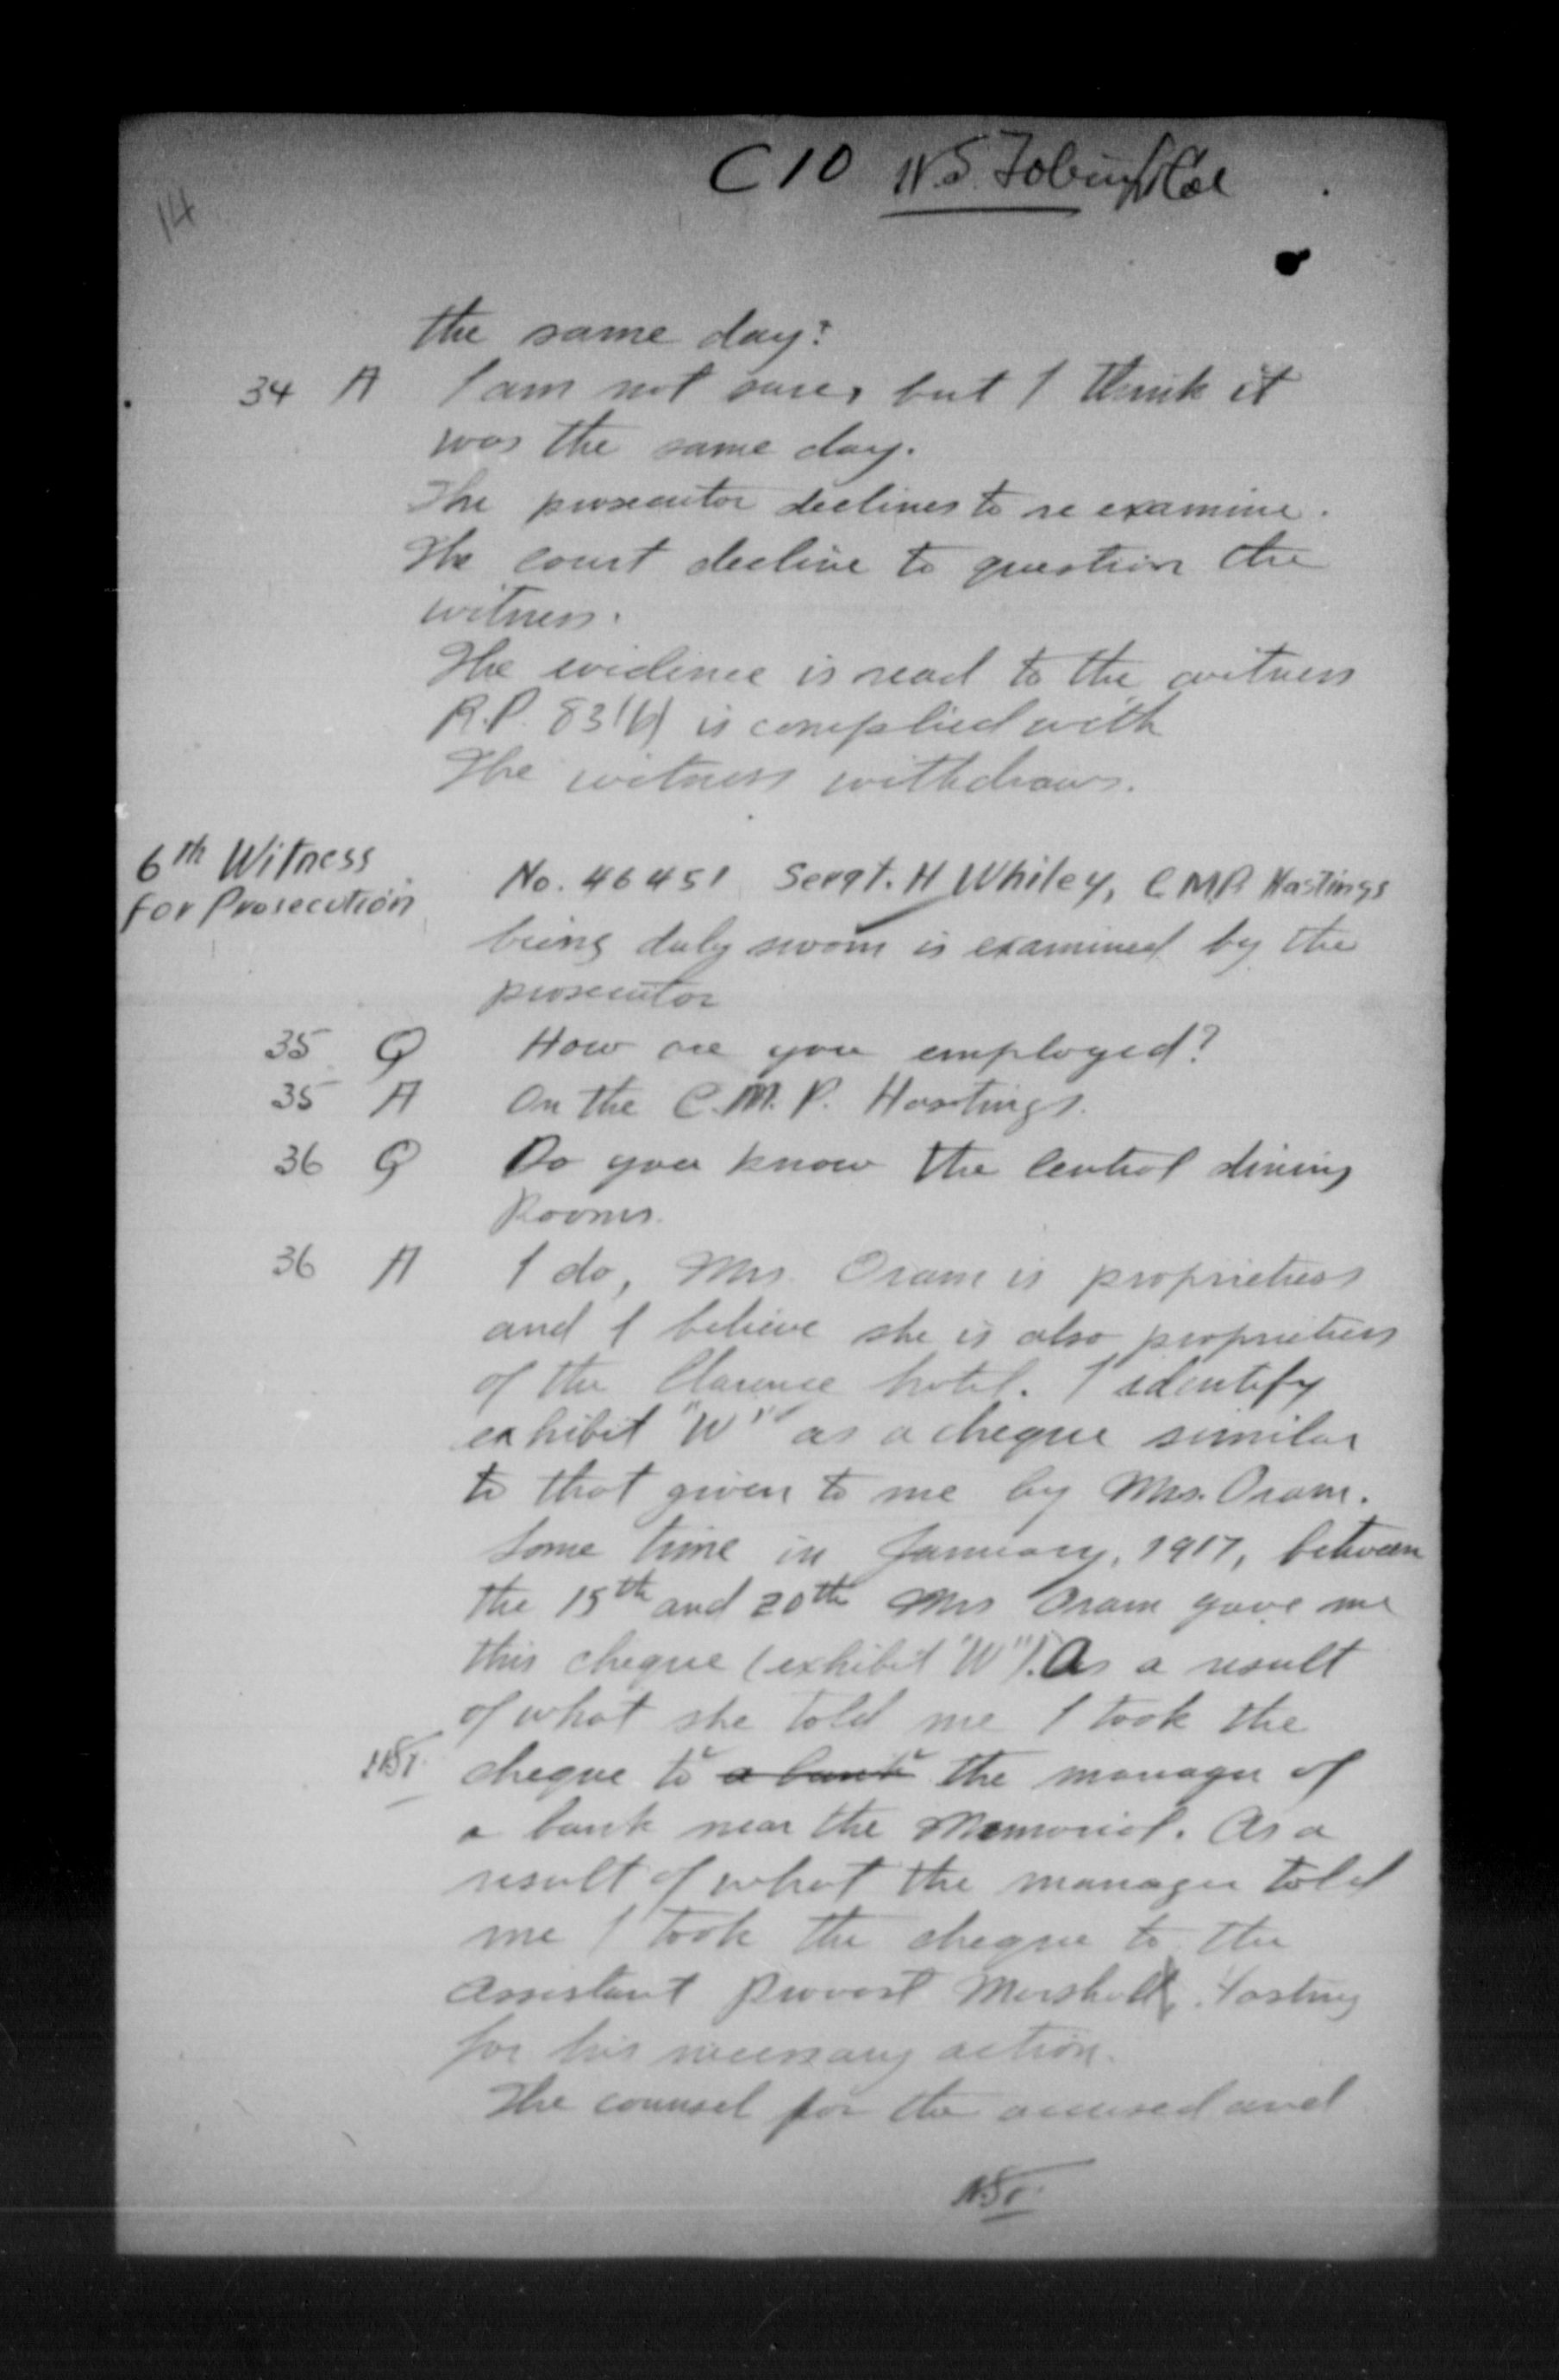 C10 W.S. Tobin Lt Col
14
the same day?
34 A I am not sure, but I think it
was the same day.
The prosecutor declines to re examine.
The court decline to question the
witness.
The evidence is read to the witness
R.P. 83(b) is complied with
The witness withdraws.
6th Witness
for Prosecution
No. 46451 Sergt. H Whiley, CMP Hastings
being duly sworn is examined by the
prosecutor
35 Q How are you employed?
35 A On the C.M.P. Hastings.
36 Q Do you know the Central dining
Rooms.
36 A I do, Mrs. Oram is proprietress
and I believe she is also proprietress
of the Clarence hotel. I identify
exhibit "W" as a cheque similar
to that given to me by Mrs. Oram.
Some time in January, 1917, between
the 15th and 20th Mrs Oram gave me
this cheque (exhibit "W"). As a result
of what she told me I took the
cheque to a bank the manager of
a bank near the Memorial. As a
result of what the manager told
me I took the cheque to the
Assistant Provost Marshall, Hastings
for his necessary action.
The counsel for the accused and